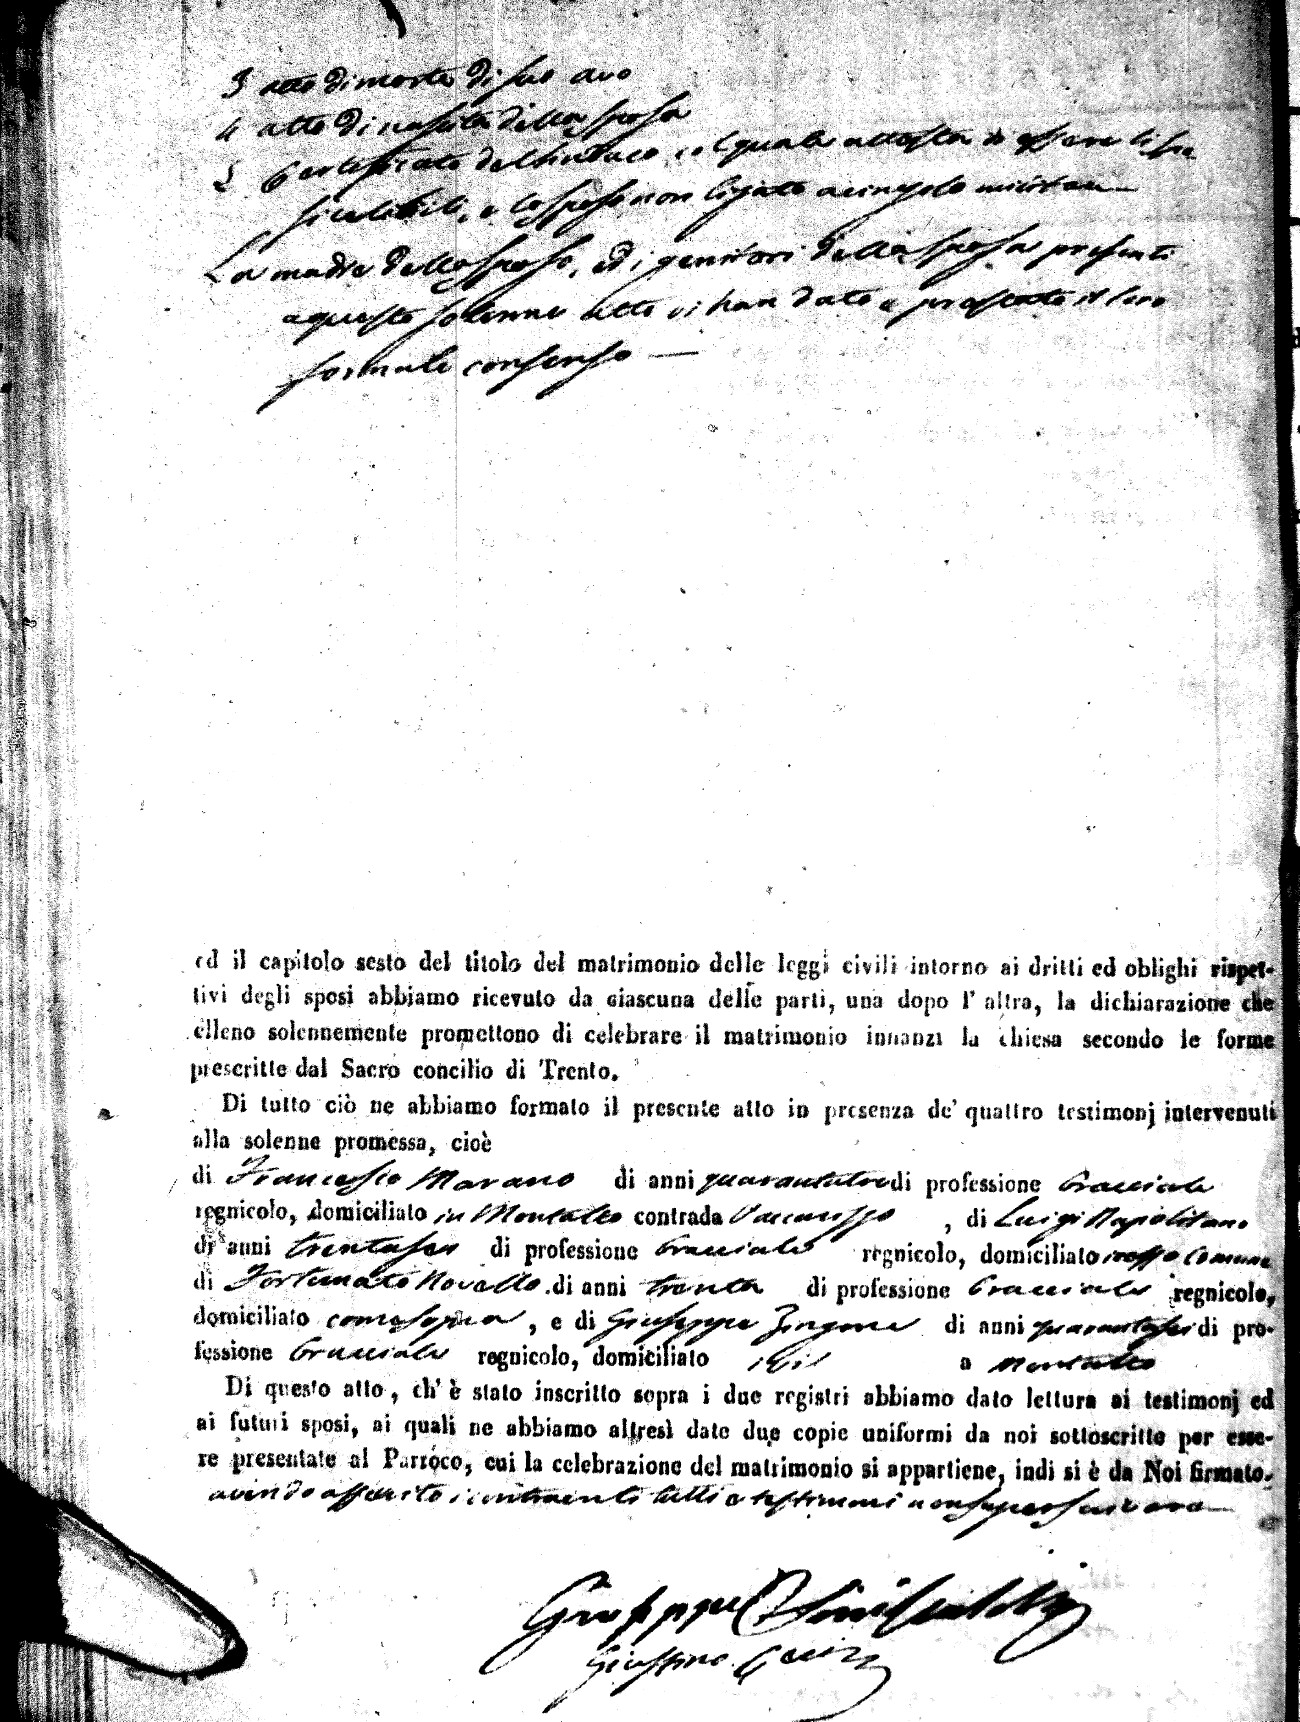 3 atto di morte di suo avo
4 atto di nascita della sposa
5 Certificato del Sindaco col quale attesta di essere
e lo sposo non ligato a cingolo militare
La madre dello sposo, ed i genitori della sposa presenti
a questo solenne atto vi han dato e prestato il loro
formale consenso —
ed il capitolo sesto del titolo del matrimonio delle leggi civili intorno ai dritti ed oblighi rispet-
tivi degli sposi abbiamo ricevuto da ciascuna delle parti, una dopo l' altra, la dichiarazione che
elleno solennemente promettono di celebrare il matrimonio innanzi la chiesa secondo le forme
prescritte dal Sacro concilio di Trento.
Di tutto ciò ne abbiamo formato il presente atto in presenza de' quattro testimonj intervenuti
alla solenne promessa, cioè
di Francesco Marano di anni quarantatre di professione bracciale
regnicolo, domiciliato in Montalto contrada Vaccarizzo , di Luigi Napolitano
di anni trentasei di professione bracciale regnicolo, domiciliato stesso comune
di Fortunato Novello di anni trenta di professione bracciale regnicolo,
domiciliato come sopra , e di Giuseppe Zingone di anni quarantasei di pro-
fessione bracciale regnicolo, domiciliato ivi a Montalto
Di questo atto, ch' è stato inscritto sopra i due registri abbiamo dato lettura ai testimonj ed
ai futuri sposi, ai quali ne abbiamo altresì date due copie uniformi da noi sottoscritte per esse-
re presentate al Parroco, cui la celebrazione del matrimonio si appartiene, indi si è da Noi firmato.
avendo asserito i contraenti tutti e testimoni non saper scrivere —
Giuseppe